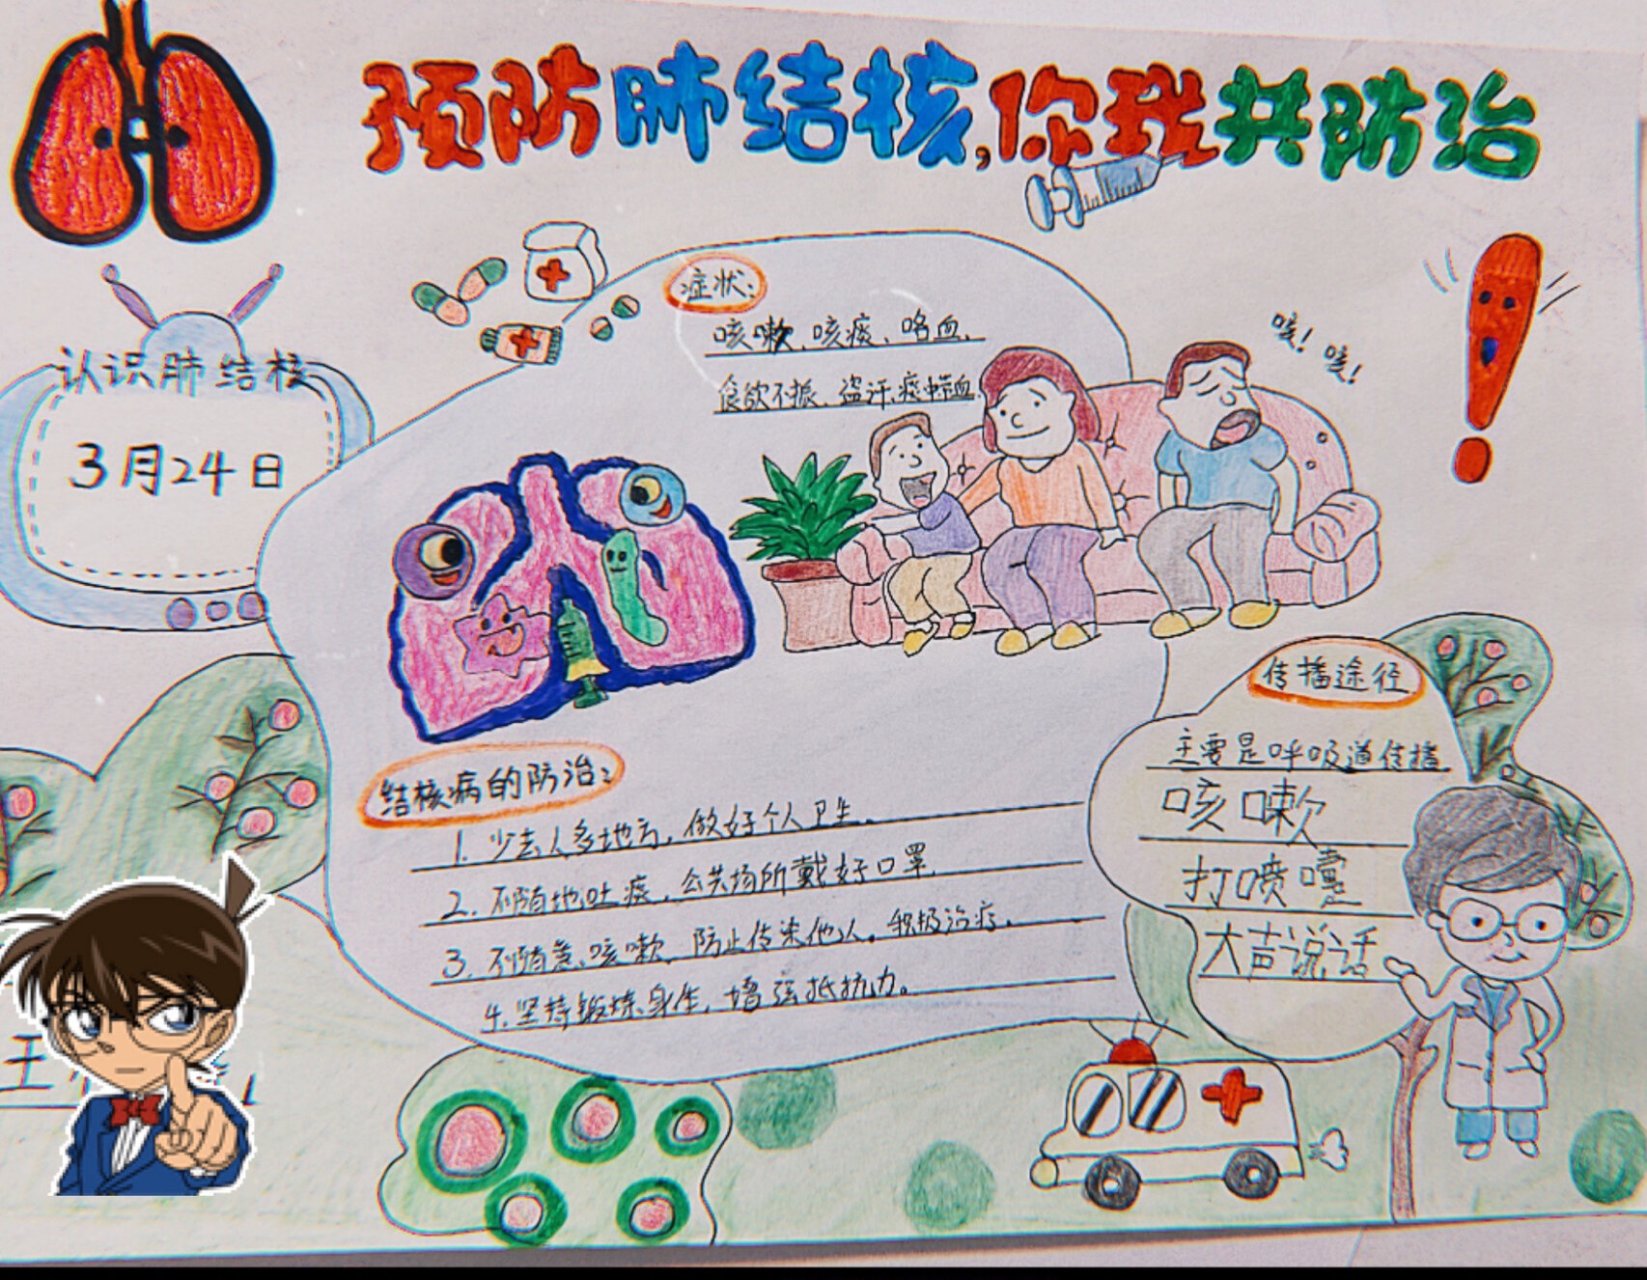 预防肺结核,你我共防治
认识肺结核
3月24日
症状:
咳嗽、咳痰、咯血、
食欲不振、盗汗、痰中带血
咳! 咳!
传播途径
主要是呼吸道传播
咳嗽
打喷嚏
大声说话
结核病的防治:
1. 少去人多地方,做好个人卫生。
2. 不随地吐痰,公共场所戴好口罩.
3. 不随意咳嗽、防止传染他人。积极治疗.
4. 坚持锻炼身体,增强抵抗力。
王